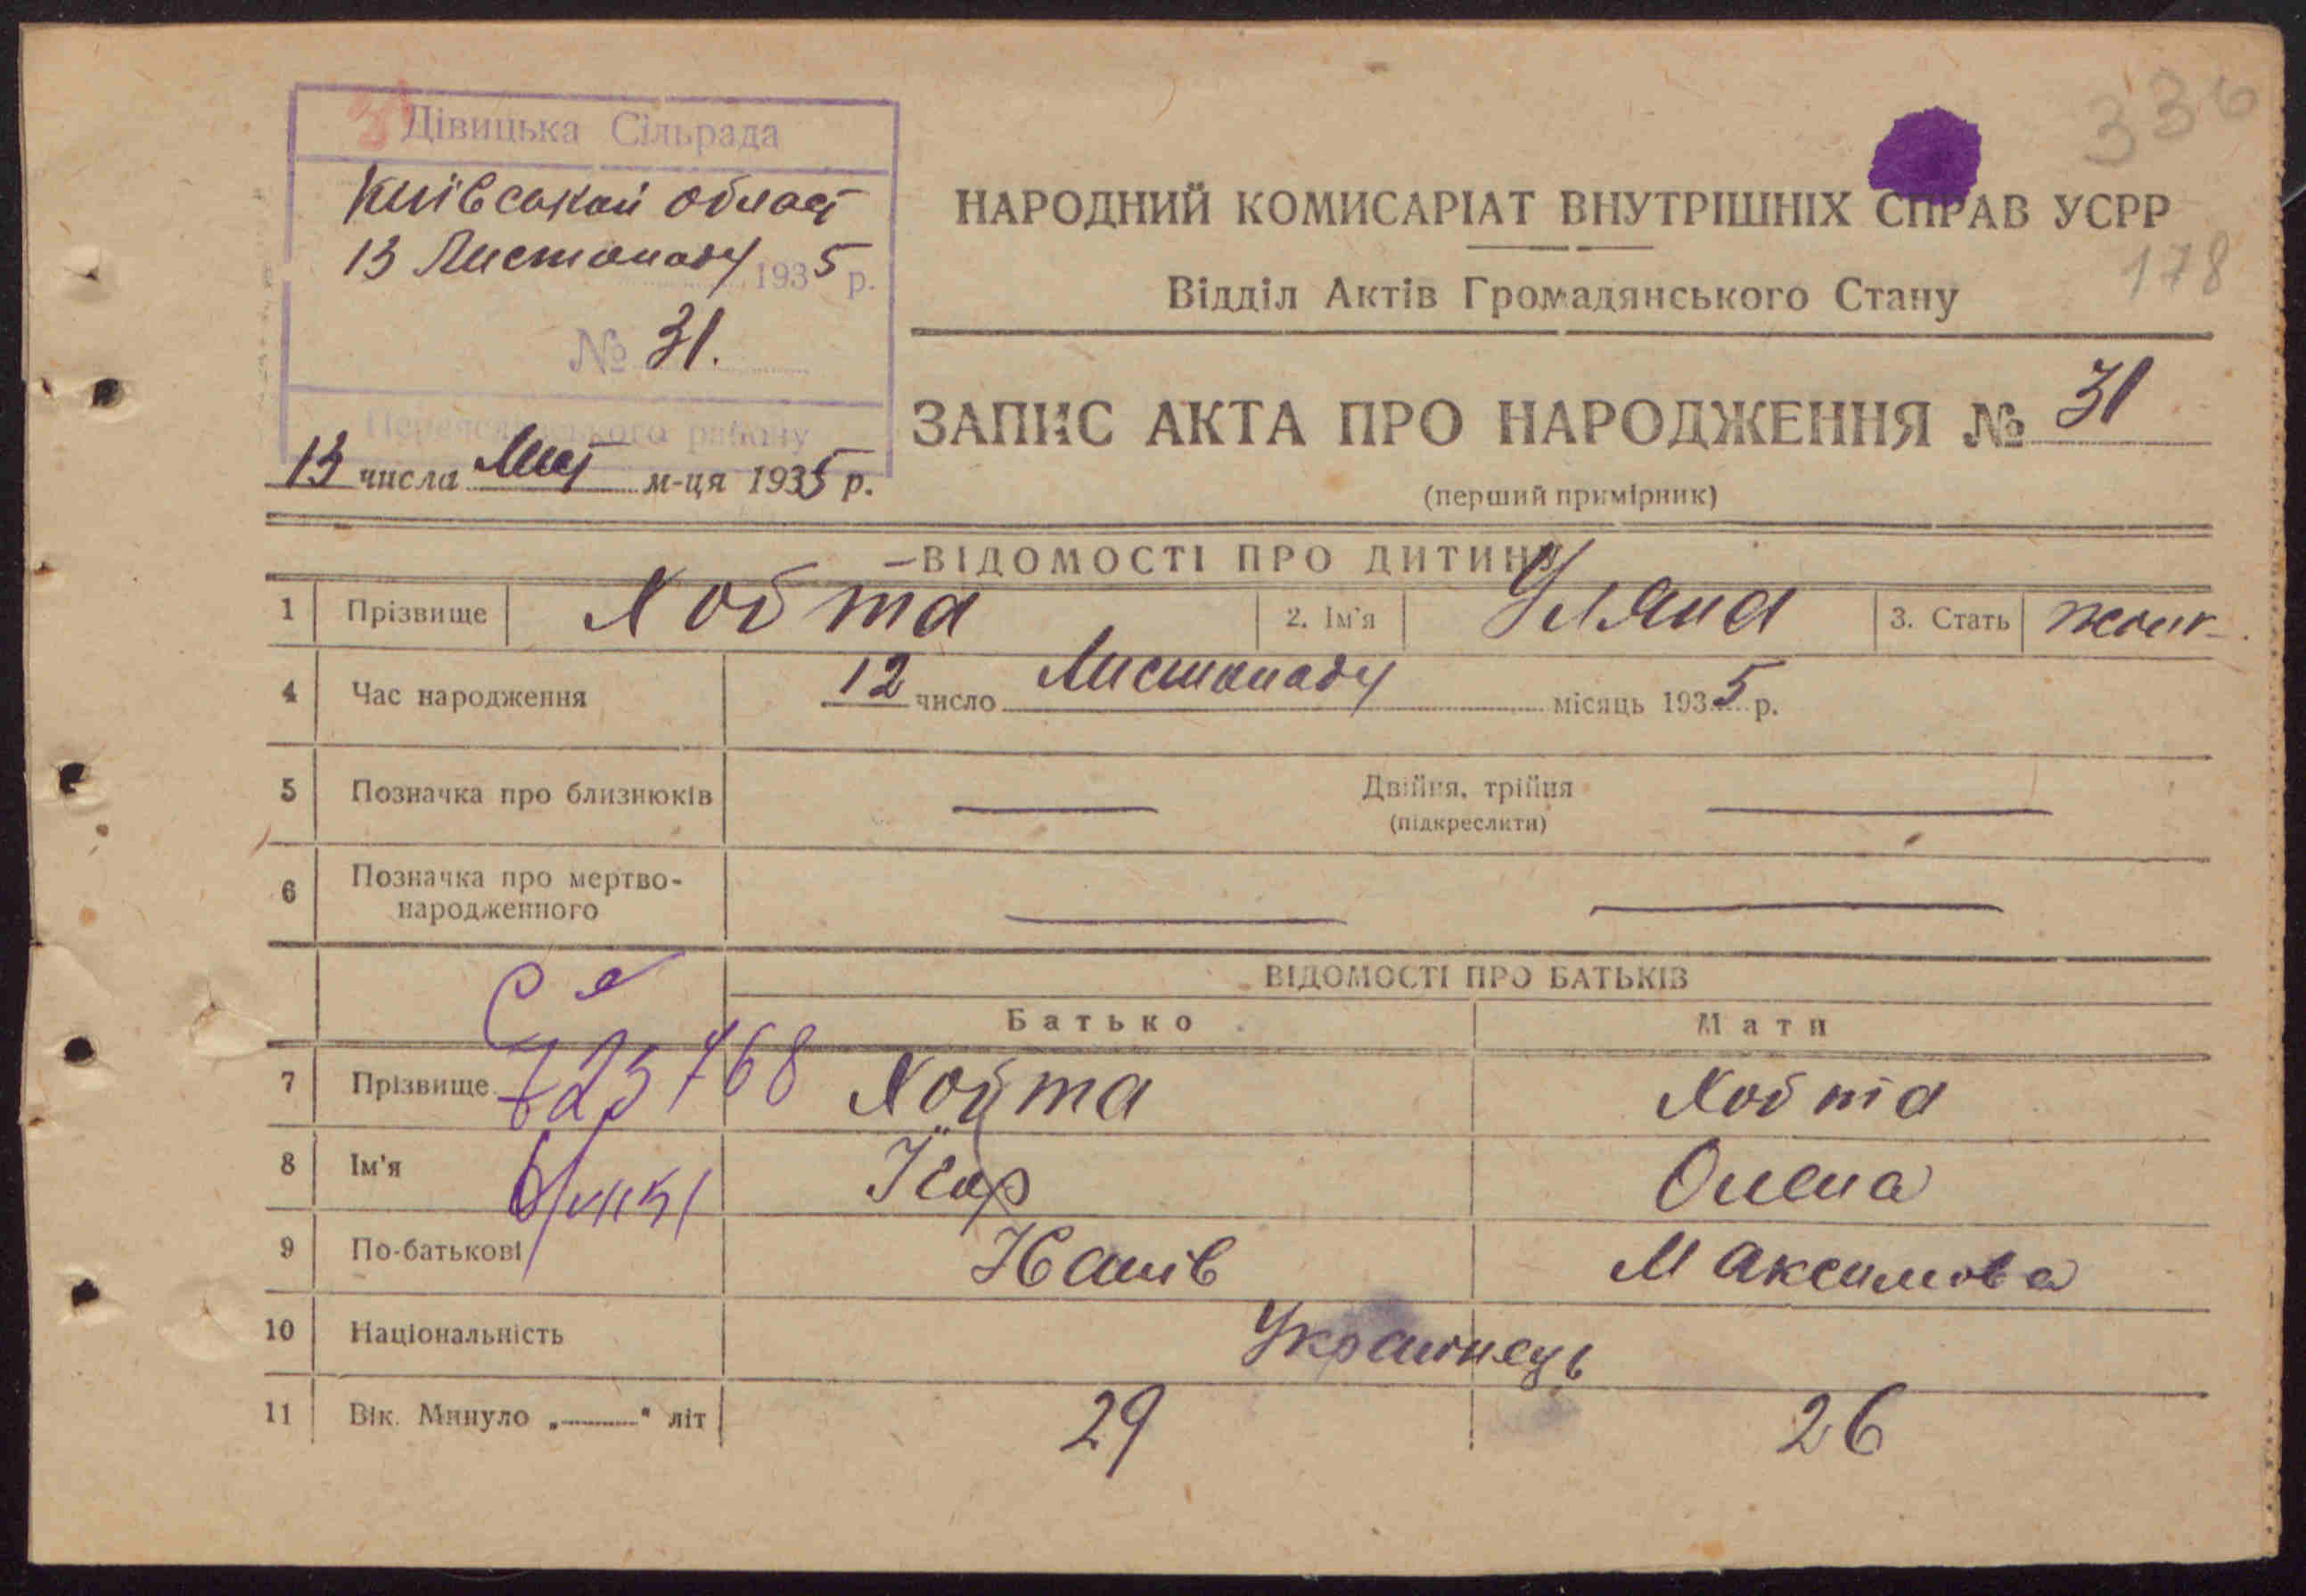 336
Дівицька Сільрада
Київської област
13 Листопаду 1935 р.
№ 31.
Переяславського району
13 числа Лист м-ця 1935 р.
НАРОДНИЙ КОМИСАРІАТ ВНУТРІШНІХ СПРАВ УСРР
178
Відділ Актів Громадянського Стану
ЗАПИС АКТА ПРО НАРОДЖЕННЯ № 31
(перший примірник)
ВІДОМОСТІ ПРО ДИТИНУ
1 Прізвище Хобта 2. Ім'я Уляна 3. Стать жіноч.
4 Час народження 12 число Листопаду місяць 1935 р.
5 Позначка про близнюків Двійня, трійня
(підкреслити)
6 Позначка про мертво-
народженного
ВІДОМОСТІ ПРО БАТЬКІВ
Батько Мати
7 Прізвище Хобта Хобта
8 Ім'я Олена
9 По-батькові Іванів Максимова
10 Національність Українець
11 Вік. Минуло „ — " літ 29 26